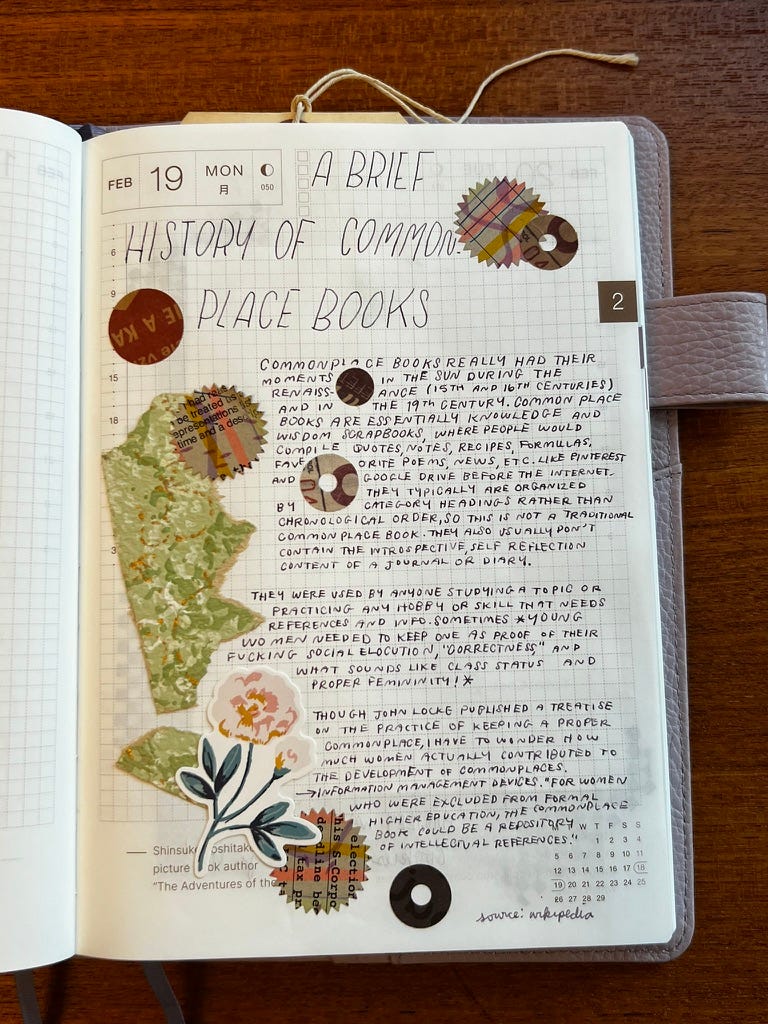 FEB 19 MON 月 050
A BRIEF
HISTORY OF COMMON-
PLACE BOOKS
2
6
9
15
18
3
IE A KA
had
be treated as
epresentations
time and a des
COMMONPLACE BOOKS REALLY HAD THEIR
MOMENTS IN THE SUN DURING THE
RENAISS- ANCE (15TH AND 16TH CENTURIES)
AND IN THE 19TH CENTURY. COMMON PLACE
BOOKS ARE ESSENTIALLY KNOWLEDGE AND
WISDOM SCRAPBOOKS, WHERE PEOPLE WOULD
COMPILE QUOTES, NOTES, RECIPES, FORMULAS,
FAVE ORITE POEMS, NEWS, ETC. LIKE PINTEREST
AND GOOGLE DRIVE BEFORE THE INTERNET.
THEY TYPICALLY ARE ORGANIZED
BY CATEGORY HEADINGS RATHER THAN
CHRONOLOGICAL ORDER, SO THIS IS NOT A TRADITIONAL
COMMONPLACE BOOK. THEY ALSO USUALLY DON'T
CONTAIN THE INTROSPECTIVE, SELF REFLECTION
CONTENT OF A JOURNAL OR DIARY.
THEY WERE USED BY ANYONE STUDYING A TOPIC OR
PRACTICING ANY HOBBY OR SKILL THAT NEEDS
REFERENCES AND INFO. SOMETIMES *YOUNG
WOMEN NEEDED TO KEEP ONE AS PROOF OF THEIR
FUCKING SOCIAL ELOCUTION, "CORRECTNESS" AND
WHAT SOUNDS LIKE CLASS STATUS AND
PROPER FEMININITY!*
THOUGH JOHN LOCKE PUBLISHED A TREATISE
ON THE PRACTICE OF KEEPING A PROPER
COMMONPLACE, I HAVE TO WONDER HOW
MUCH WOMEN ACTUALLY CONTRIBUTED TO
THE DEVELOPMENT OF COMMONPLACES.
→INFORMATION MANAGEMENT DEVICES. "FOR WOMEN
WHO WERE EXCLUDED FROM FORMAL
HIGHER EDUCATION, THE COMMONPLACE
BOOK COULD BE A REPOSITORY
OF INTELLECTUAL REFERENCES."
M T W T F S S
1 2 3 4
5 6 7 8 9 10 11
12 13 14 15 16 17 18
19 20 21 22 23 24 25
26 27 28 29
source: wikipedia
— Shinsuke oshitake
picture ok author
"The Adventures of the
election
his S-Corpo
dline be
tax pr